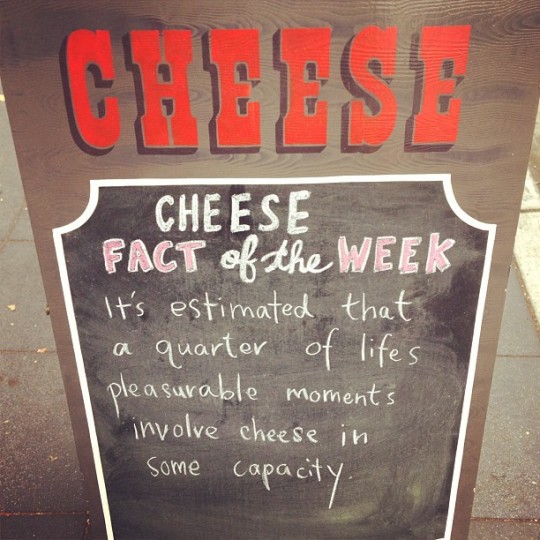 CHEESE
CHEESE
FACT of the WEEK
It's estimated that
a quarter of lifes
pleasurable moments
involve cheese in
some capacity.